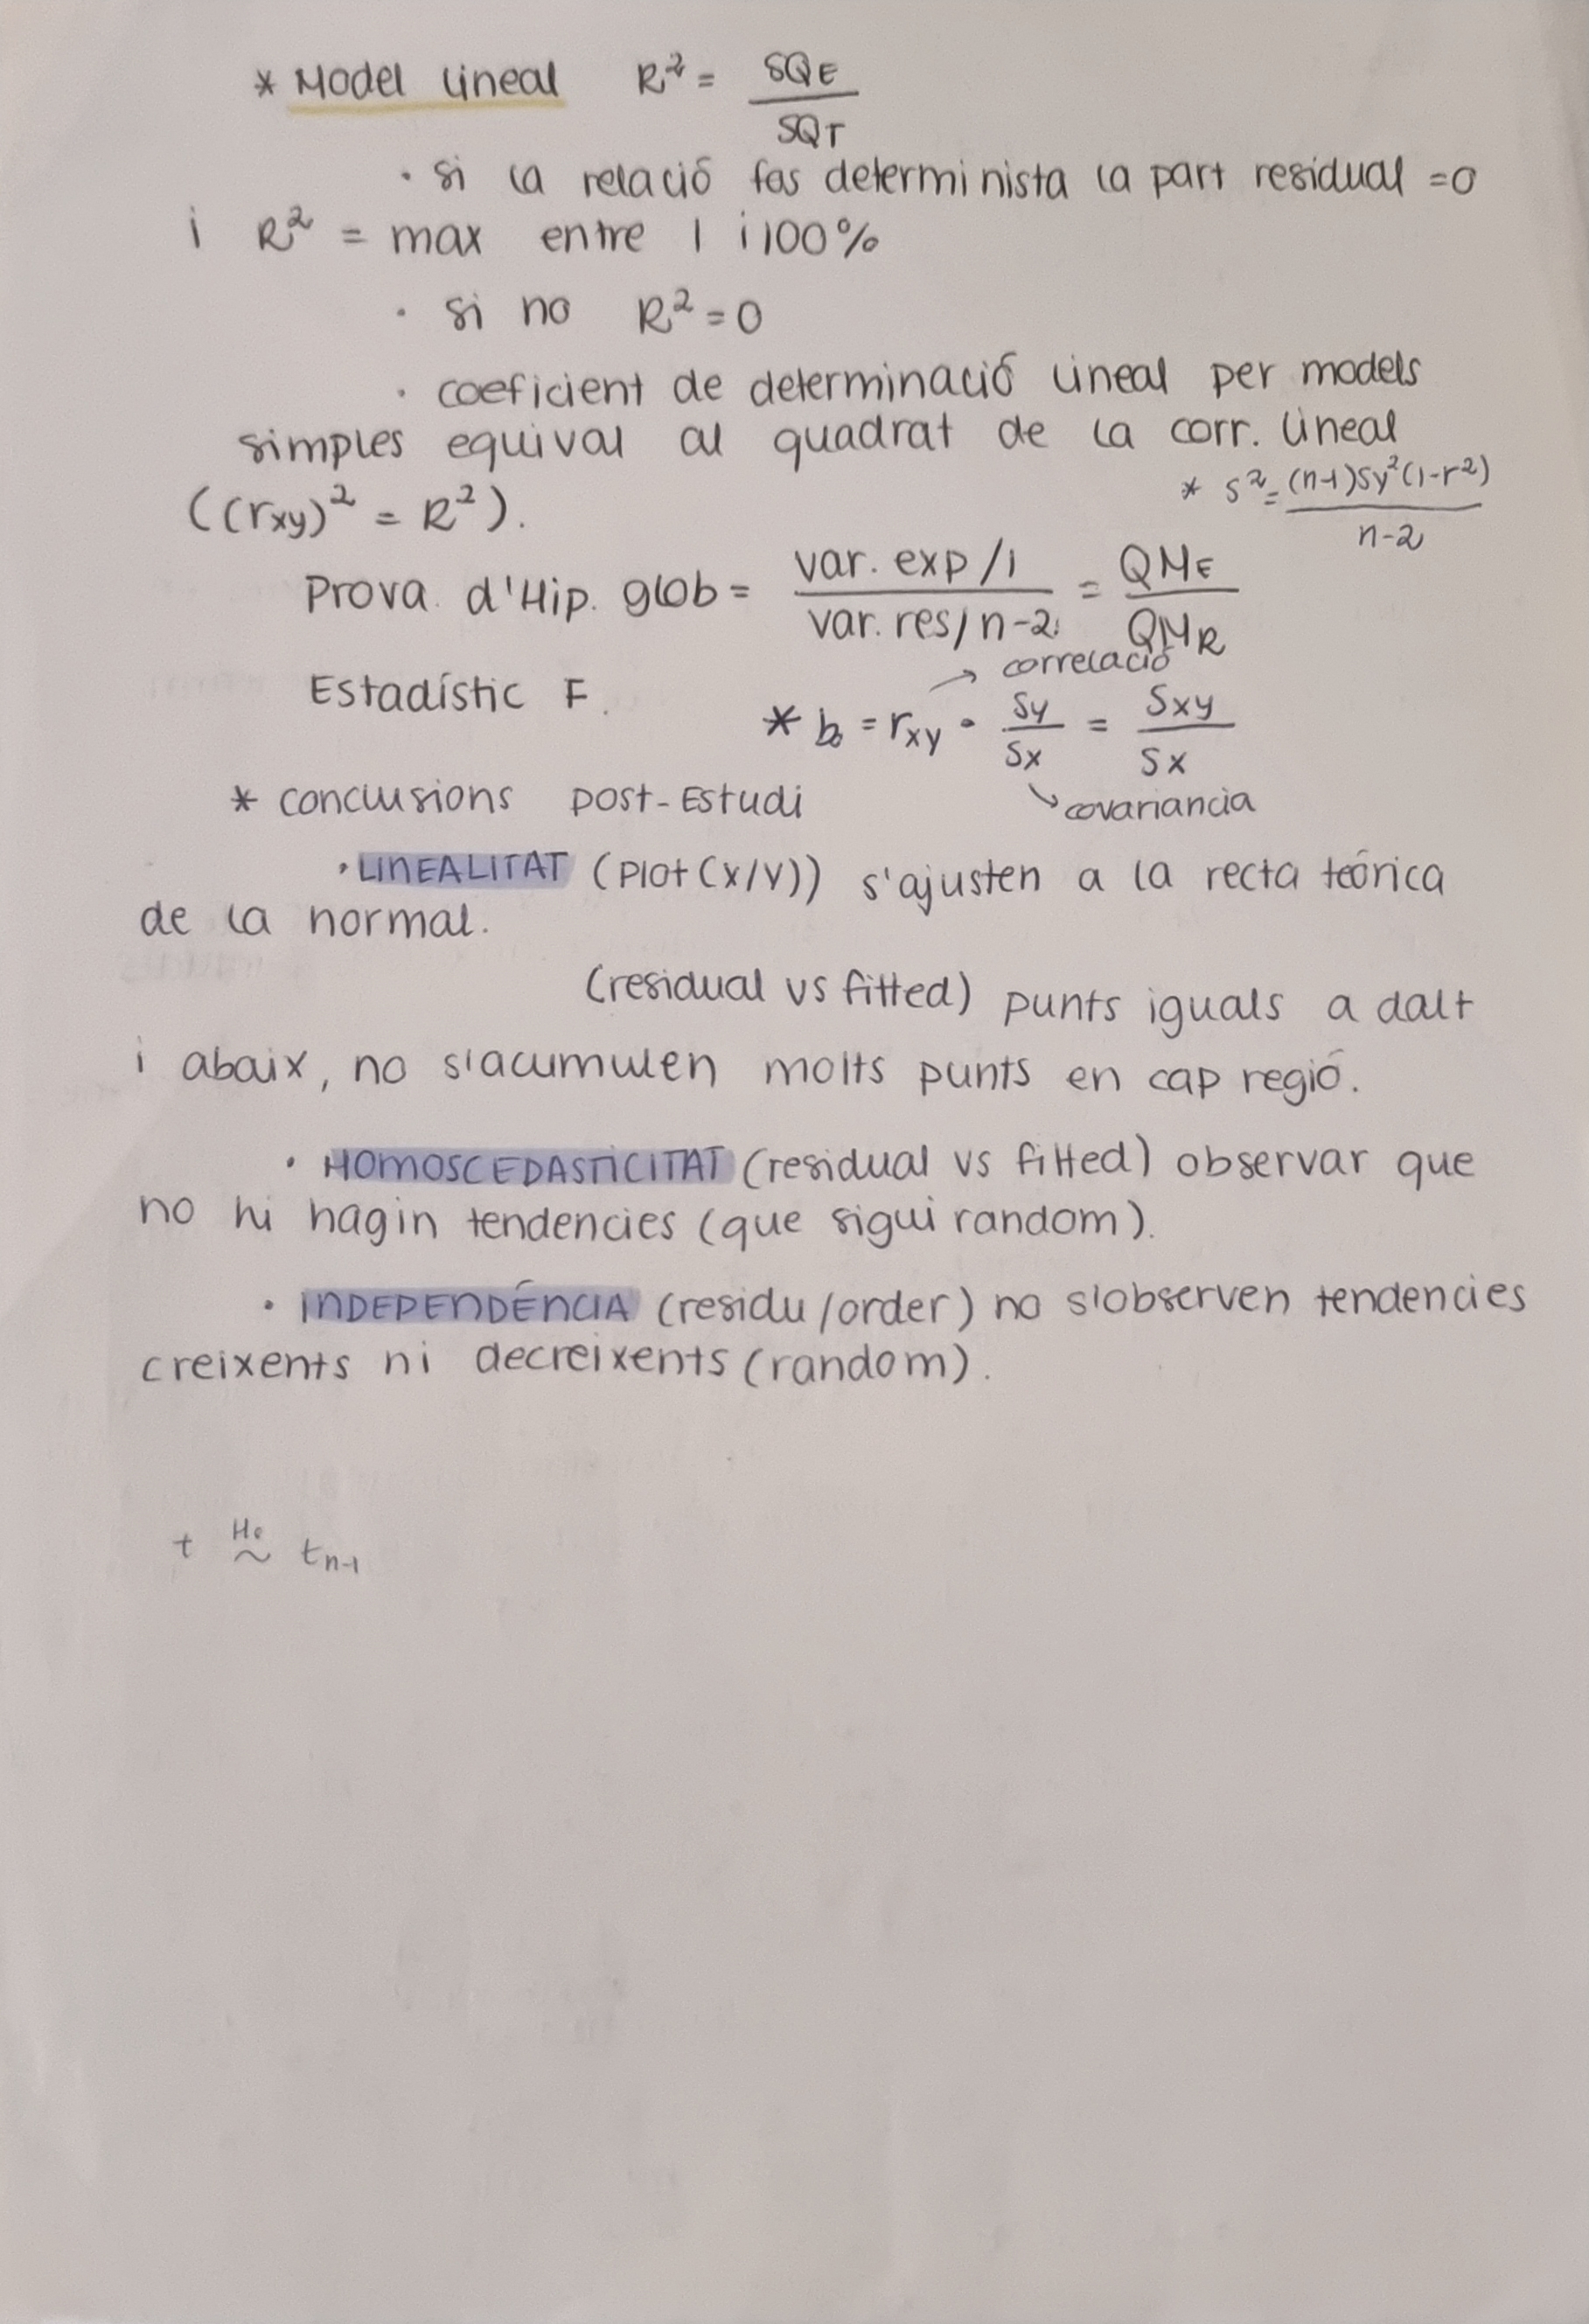 * Model lineal R² = SQE / SQT
· si la relació fos determinista la part residual = 0
i R² = max entre 1 i 100%
· si no R² = 0
· coeficient de determinació lineal per models
simples equival al quadrat de la corr. lineal
((rxy)² = R²).
* S² = (n-1)Sy²(1-r²) / n-2
Prova d'Hip. glob = var. exp/1 / var. res/n-2 = QME / QMR
Estadístic F.
→ correlació
* b = rxy · Sy / Sx = Sxy / Sx
↘ covariancia
* conclusions post-Estudi
· LINEALITAT (Plot (X/Y)) s'ajusten a la recta teórica
de la normal.
(residual vs fitted) punts iguals a dalt
i abaix, no s'acumulen molts punts en cap regió.
· HOMOSCEDASTICITAT (residual vs fitted) observar que
no hi hagin tendencies (que sigui random).
· INDEPENDÉNCIA (residu/order) no s'observen tendencies
creixents ni decreixents (random).
t H₀ ~ tn-1